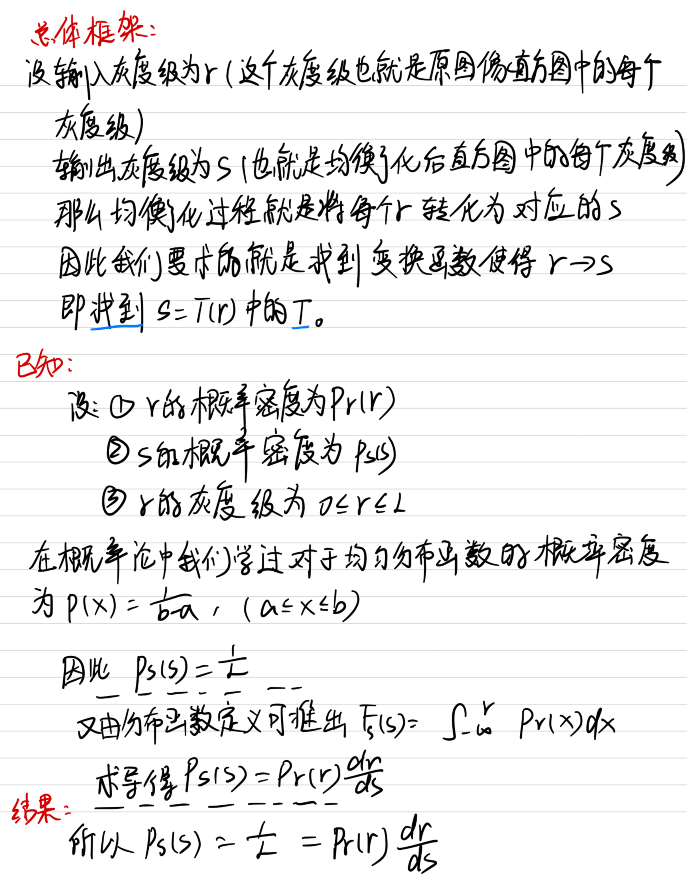 总体框架：
设输入灰度级为r（这个灰度级也就是原图像直方图中的每个
灰度级）
输出灰度级为S（也就是均衡化后直方图中的每个灰度级）
那么均衡化过程就是将每个r转化为对应的s
因此我们要求的就是找到变换函数使得 r→s
即找到 S=T(r)中的T。
已知：
设：① r的概率密度为Pr(r)
② s的概率密度为Ps(s)
③ r的灰度级为 0≤r≤L
在概率论中我们学过对于均匀分布函数的概率密度
为 P(x) = 1/(b-a)，(a≤x≤b)
因此 Ps(s) = 1/L
又由分布函数定义可推出 Fs(s) = ∫_{-∞}^{r} Pr(x)dx
求导得 Ps(s) = Pr(r) dr/ds
结果：
所以 Ps(s) = 1/L = Pr(r) dr/ds